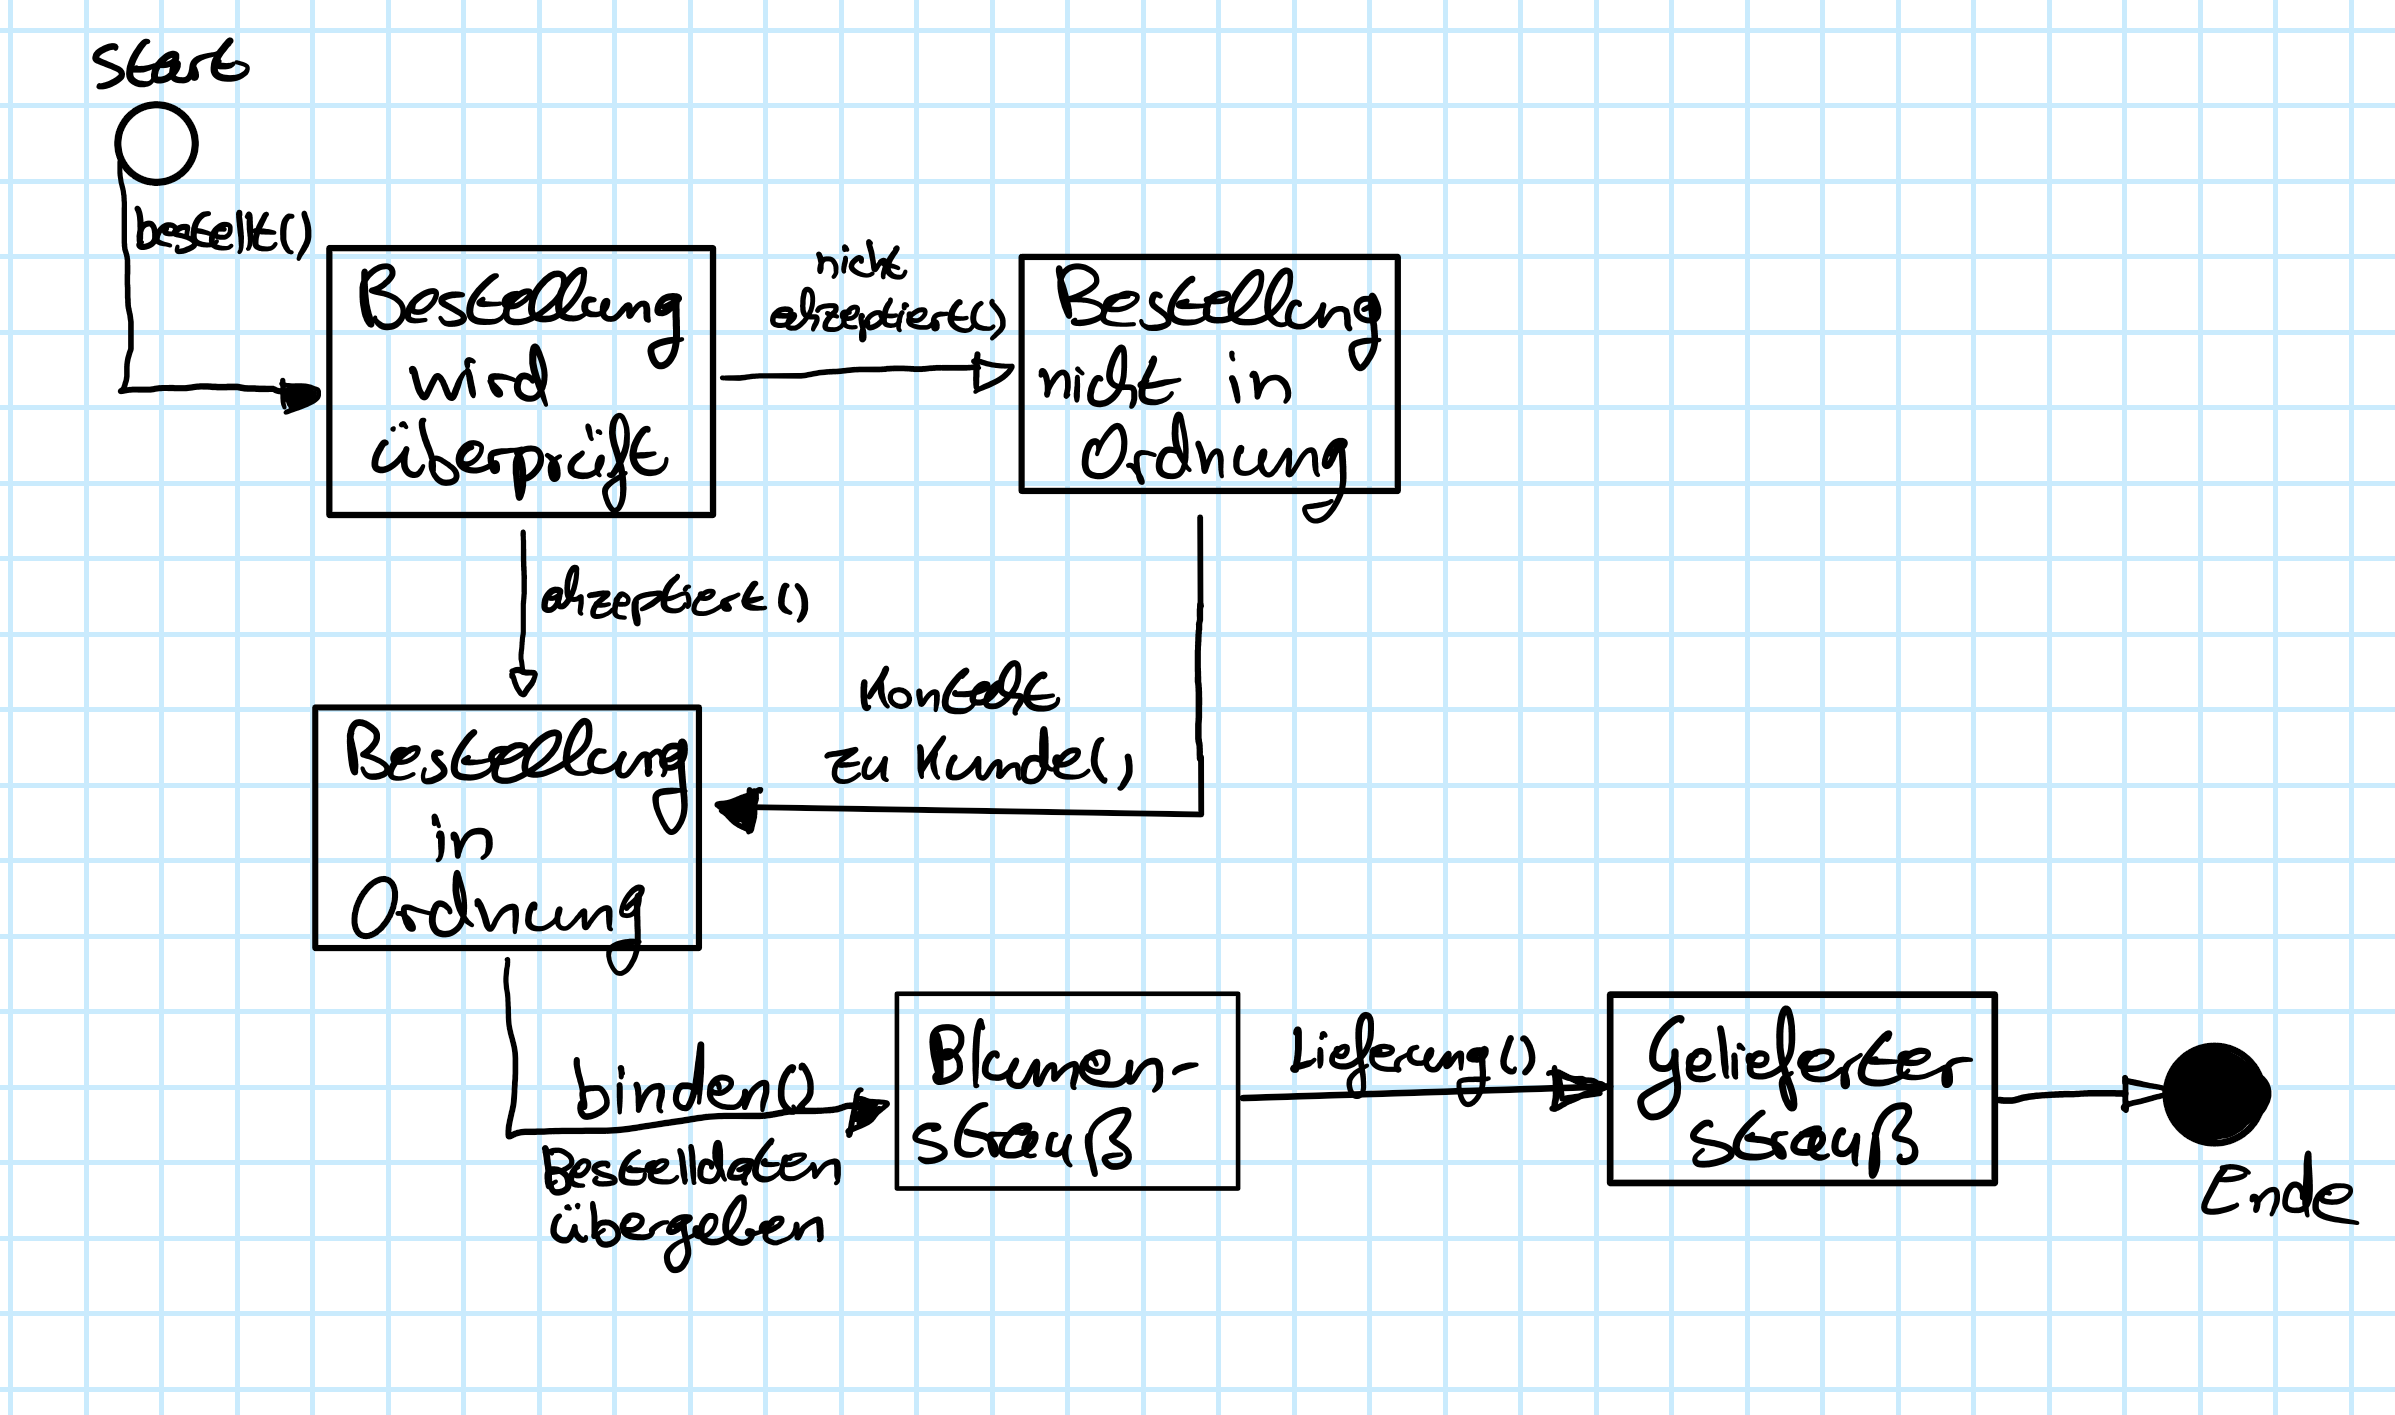 Start
bestellt()
Bestellung
wird
überprüft
nicht
akzeptiert()
Bestellung
nicht in
Ordnung
akzeptiert()
Kontakt
zu Kunde()
Bestellung
in
Ordnung
binden()
Bestelldaten
übergeben
Blumen-
strauß
Lieferung()
Gelieferter
Strauß
Ende